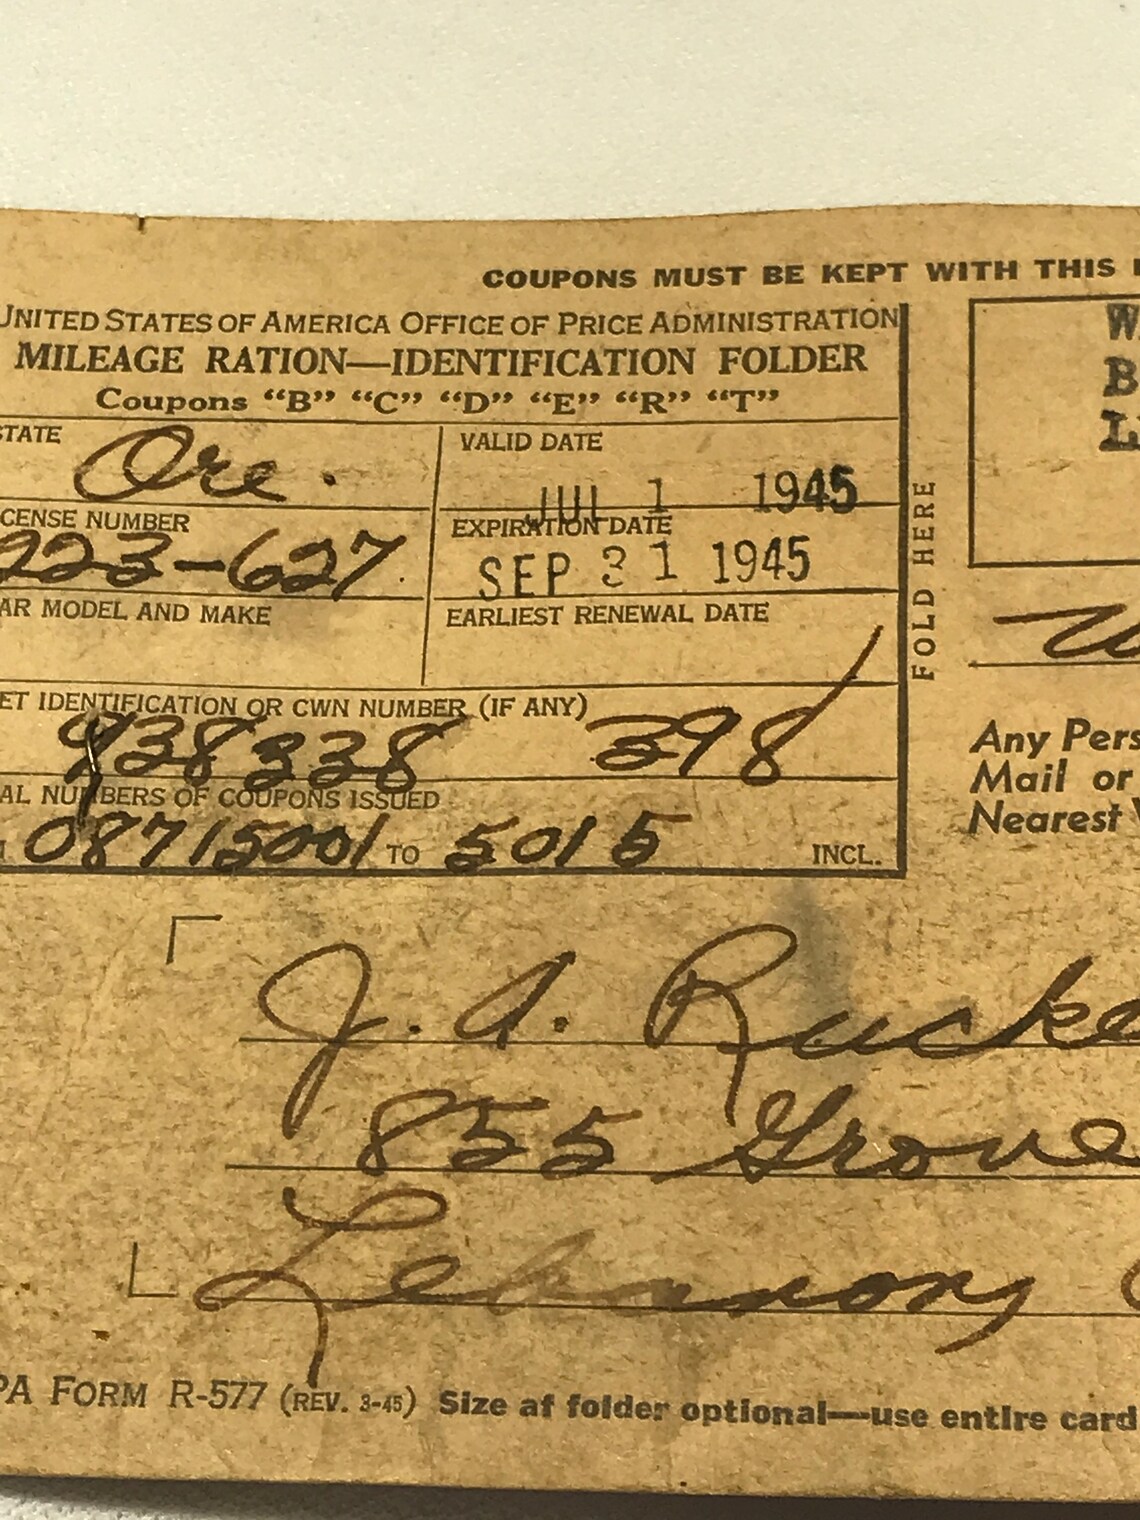 COUPONS MUST BE KEPT WITH THIS
UNITED STATES OF AMERICA OFFICE OF PRICE ADMINISTRATION
MILEAGE RATION—IDENTIFICATION FOLDER
Coupons "B" "C" "D" "E" "R" "T"
STATE
Ore.
VALID DATE
JUL 1 1945
CENSE NUMBER
223-627
EXPIRATION DATE
SEP 31 1945
AR MODEL AND MAKE
EARLIEST RENEWAL DATE
ET IDENTIFICATION OR CWN NUMBER (IF ANY)
938338 398
AL NUMBERS OF COUPONS ISSUED
08715001 TO 5015 INCL.
FOLD HERE
W
B
L
Any Pers
Mail or
Nearest
J. A. Rucke
855 Grove
Lebanon,
PA FORM R-577 (REV. 3-45) Size af folder optional—use entire card